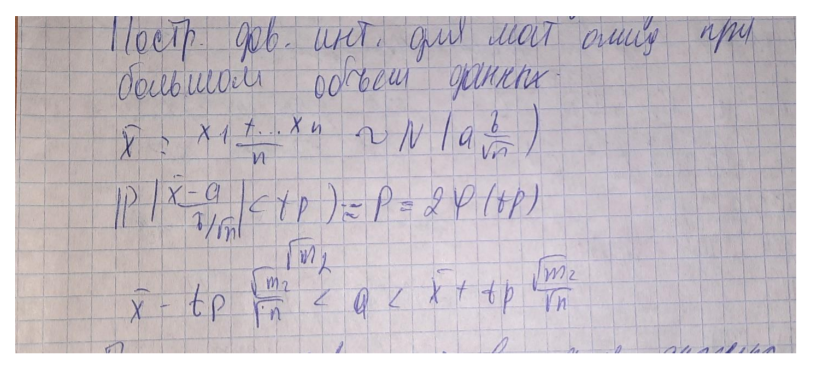 Постр. дов. инт. для мат ожид при
большом объем данных.
x̄ = x1 + ... xn / n ~ N (a σ/√n)
P (|x̄ - a / σ/√n| < tp) ≈ P = 2φ(tp)
√m2
x̄ - tp √m2/√n < a < x̄ + tp √m2/√n